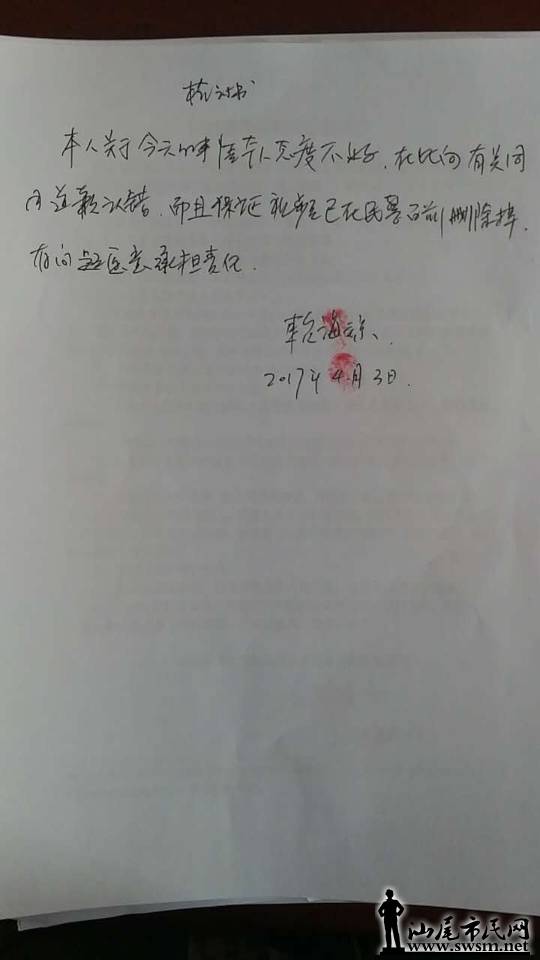 检讨书
本人关于今天的事情本人态度不好,在此向有关同
道歉认错,而且保证 已在民警面前删除掉,
有问 愿意承担责任.
海
2017年4月3日.
汕尾市民网
www.swsm.net